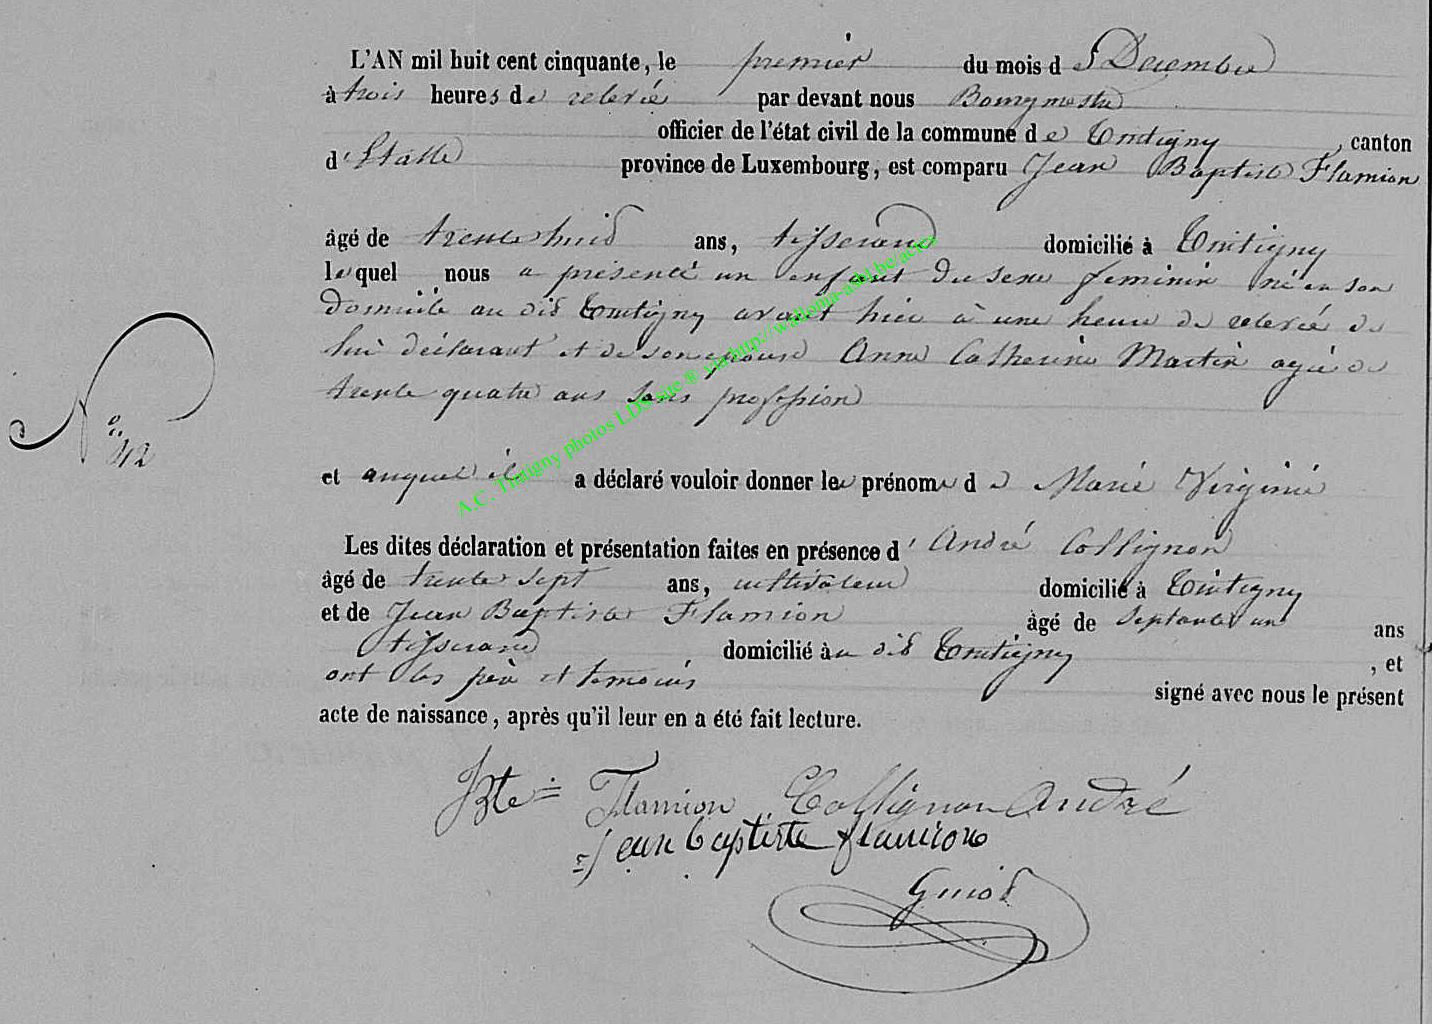 L'AN mil huit cent cinquante, le premier du mois d e Decembre
à trois heures de relevée par devant nous Bourgmestre
officier de l'état civil de la commune de Tintigny, canton
d'Etalle province de Luxembourg, est comparu Jean Baptiste Flamion
âgé de trente huit ans, tisserand domicilié à Tintigny
lequel nous a présenté un enfant du sexe feminin né en son
domicile au dit Tintigny avant hier à une heure de relevée de
lui déclarant et de son epouse Anne Catherine Martin agée de
trente quatre ans sans profession
N° 42
et auquel il a déclaré vouloir donner les prénoms d e Marie Virginie
Les dites déclaration et présentation faites en présence d' André Collignon
âgé de trente sept ans, cultivateur domicilié à Tintigny
et de Jean Baptiste Flamion âgé de septante un ans
tisserand domicilié au dit Tintigny, et
ont les père et temoins signé avec nous le présent
acte de naissance, après qu'il leur en a été fait lecture.
JBte Flamion Collignon André
jean baptiste flamion
Guiot
A.C. Tintigny photos LDS site ® via http://wallonia-asbl.be/actes